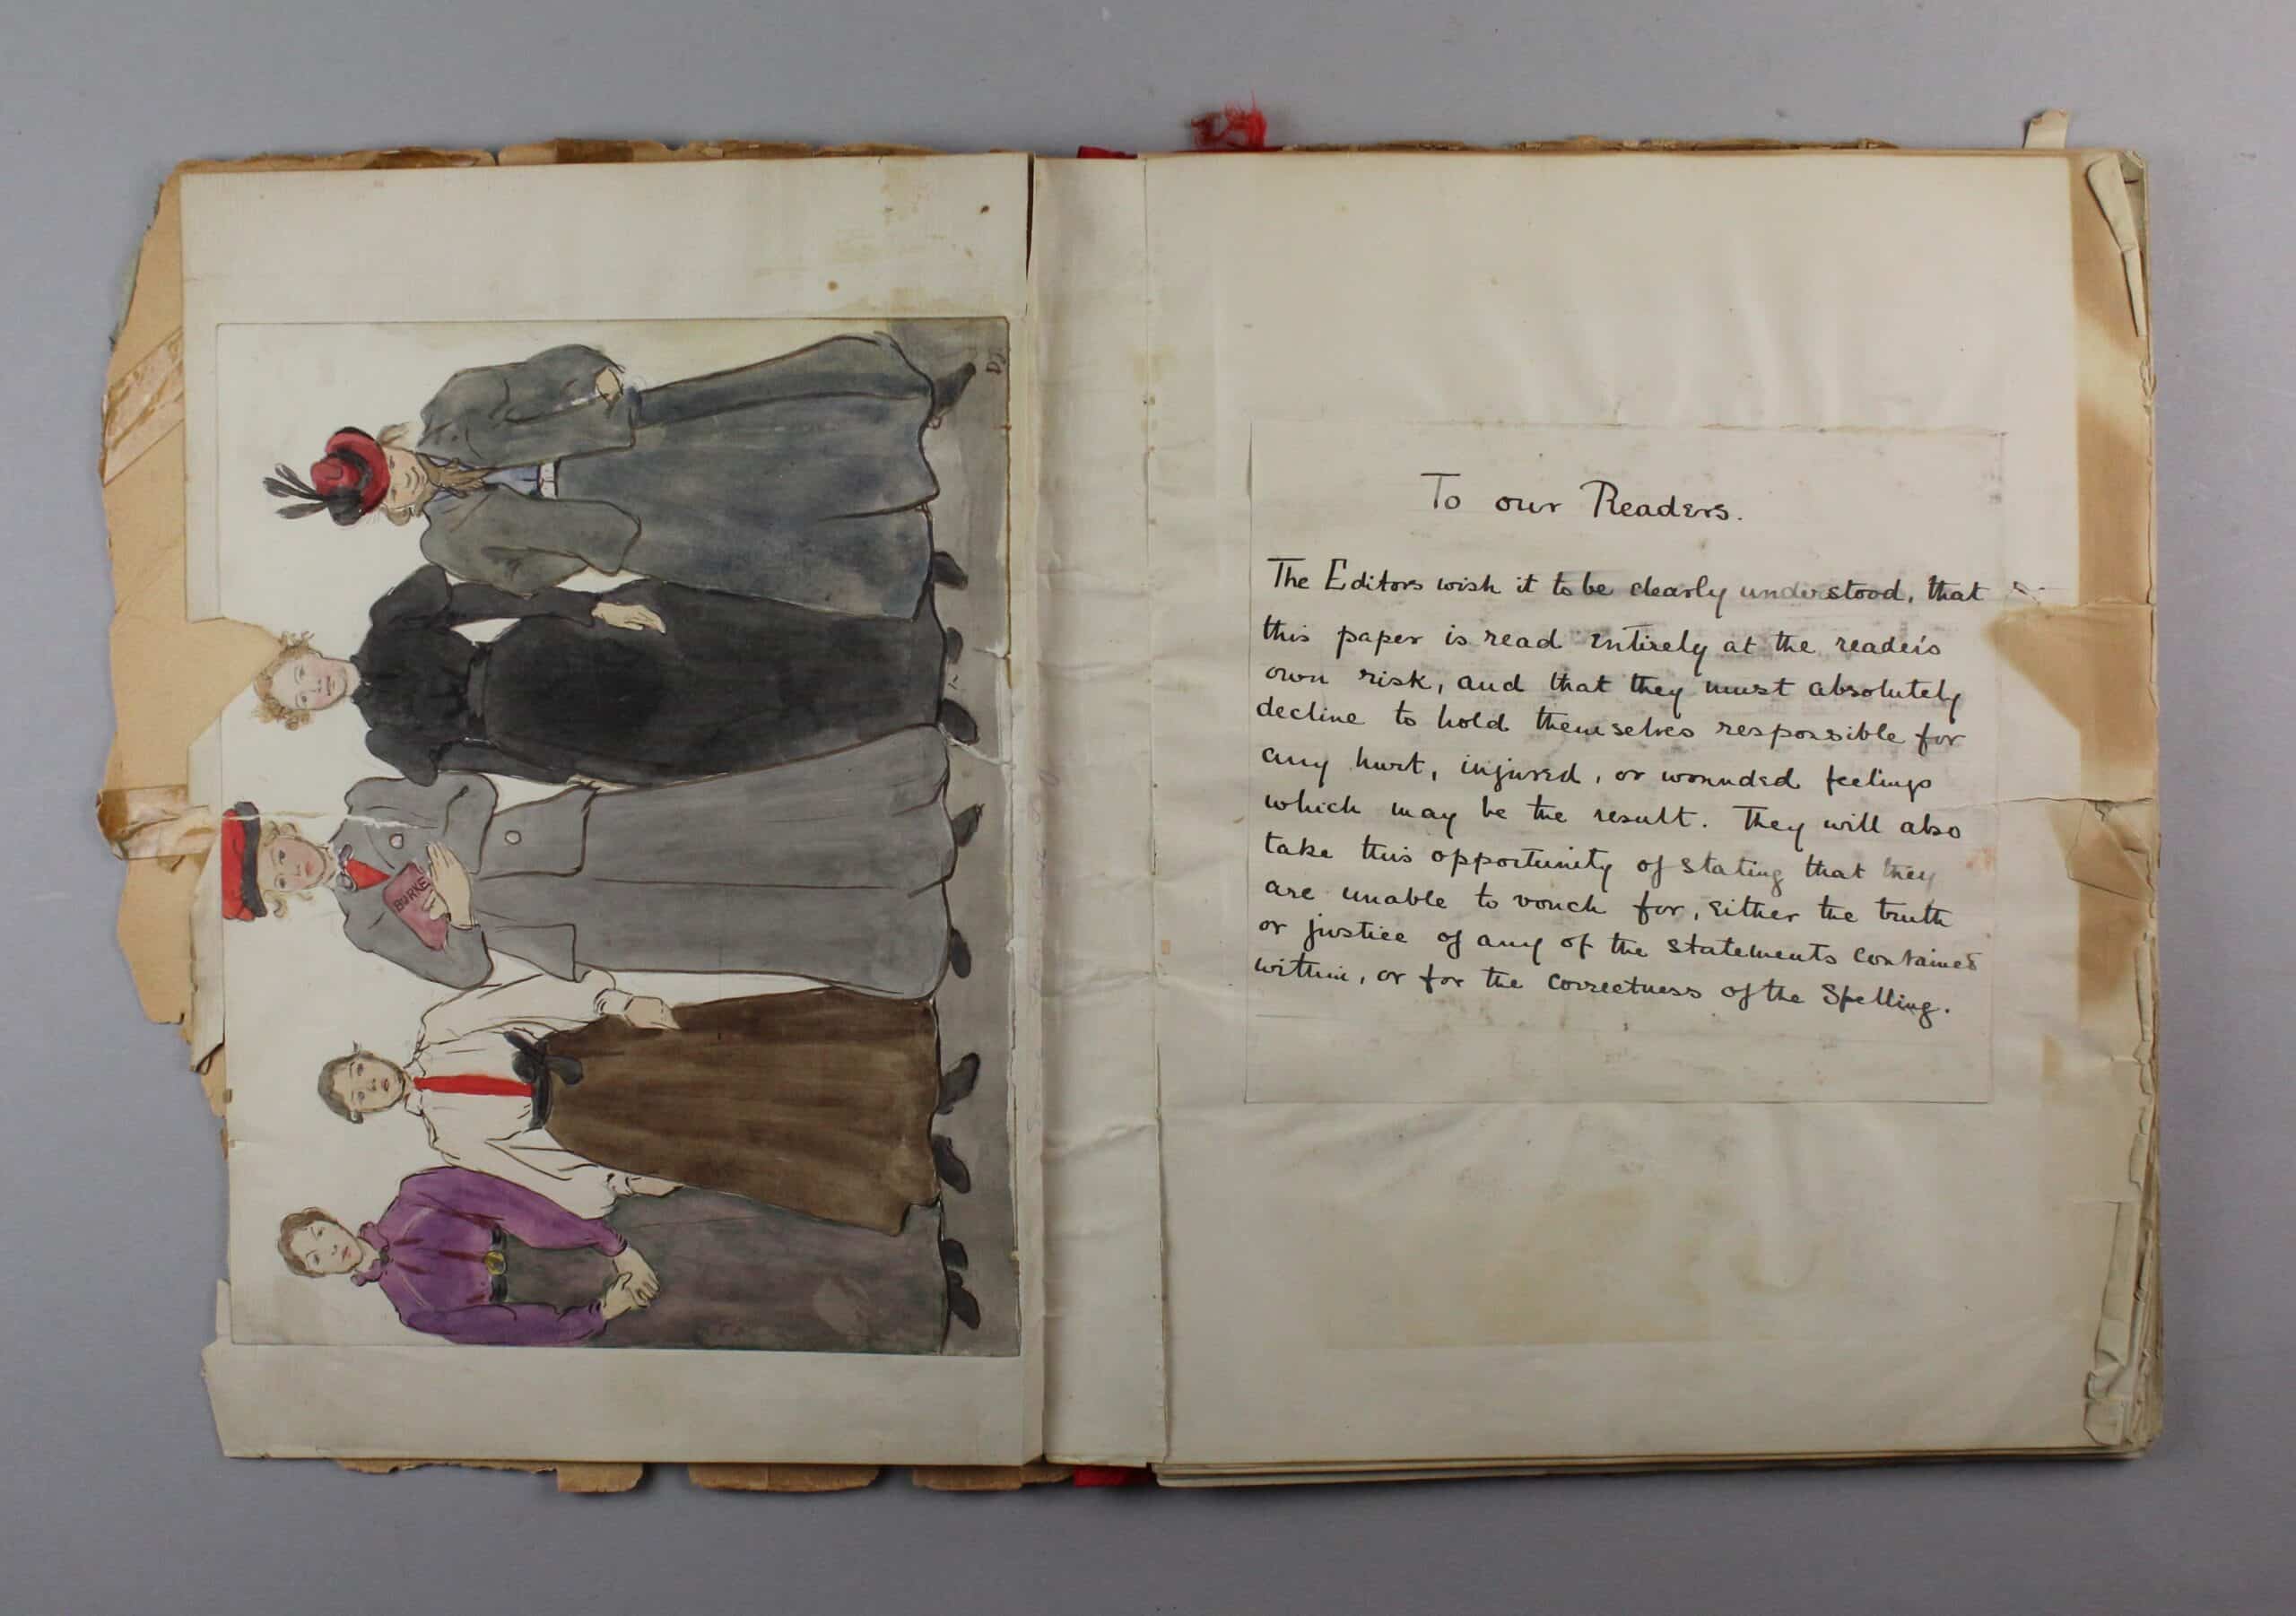 BURKE
DJ
To our Readers.
The Editors wish it to be clearly understood, that
this paper is read entirely at the reader's
own risk, and that they must absolutely
decline to hold themselves responsible for
any hurt, injured, or wounded feelings
which may be the result. They will also
take this opportunity of stating that they
are unable to vouch for, either the truth
or justice of any of the statements contained
within, or for the correctness of the Spelling.